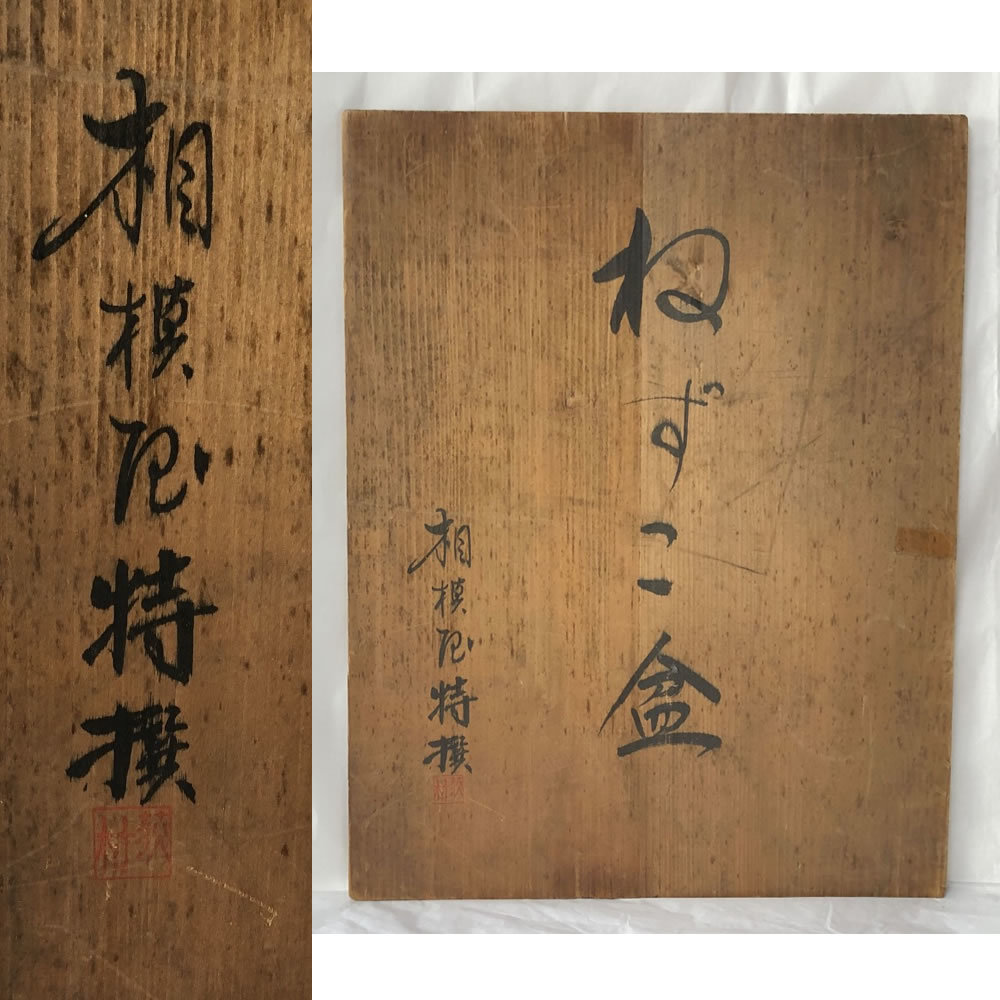 相模屋特撰
ねずこ盆
相模屋特撰